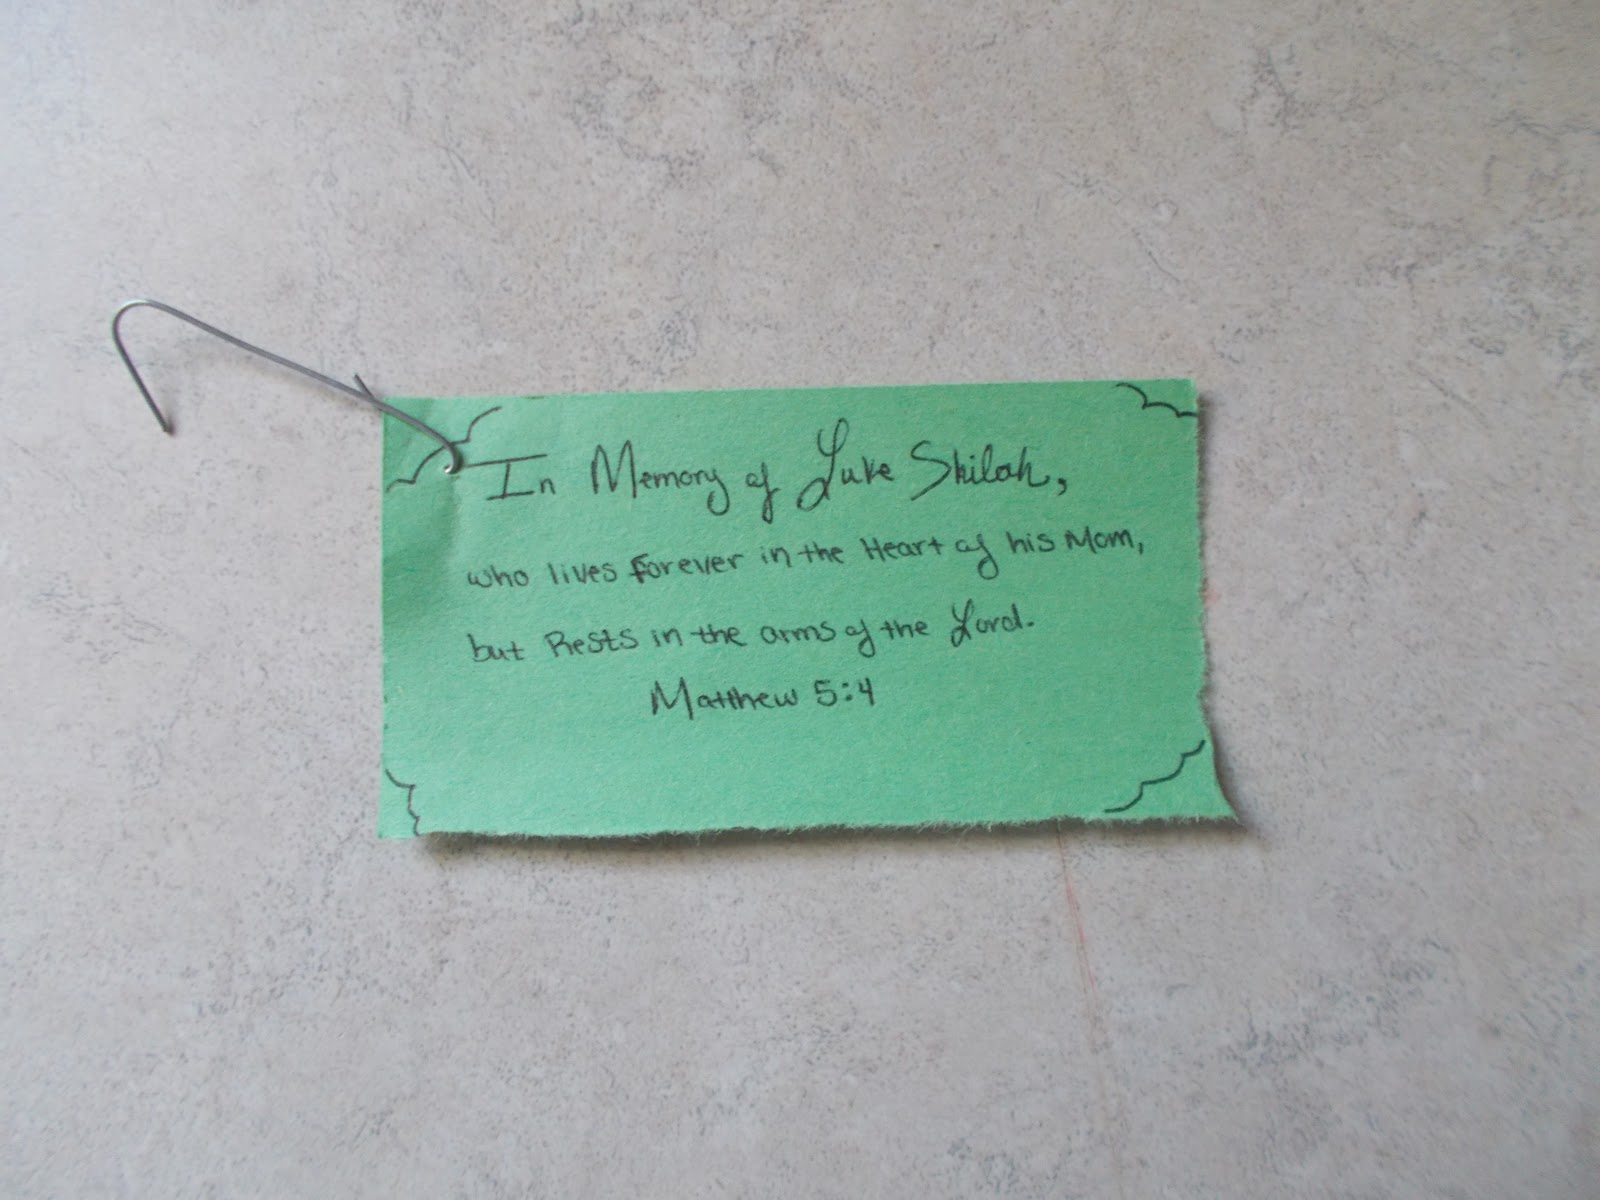 In Memory of Luke Shiloh,
who lives forever in the Heart of his Mom,
but Rests in the arms of the Lord.
Matthew 5:4